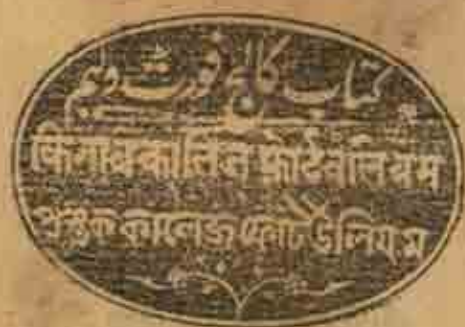 کتاب کالج فورٹ ولیم
किताब कालिज फोर्टवलियम
পুস্তক কালেজ ফোর্ট উলিয়ম